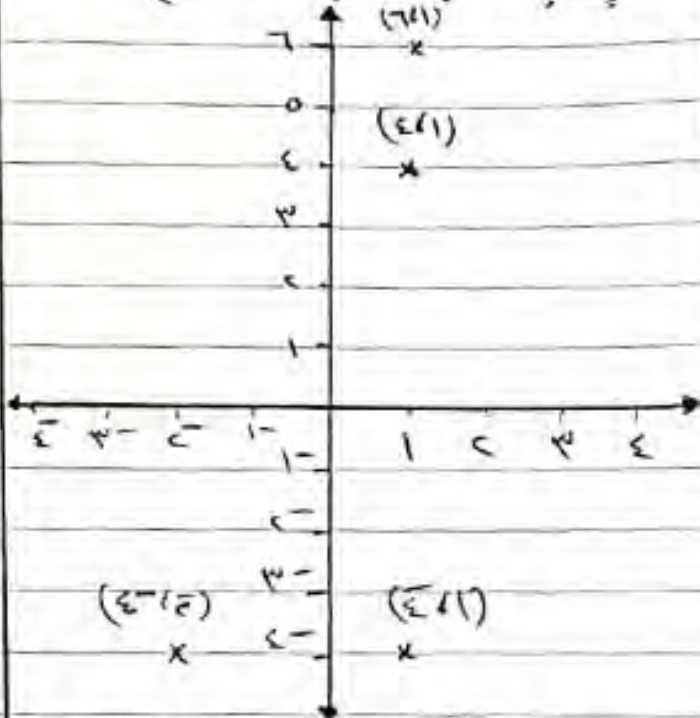 (١،٦)
٦
٥
(١،٤)
٤
٣
٢
١
-٤ -٣ -٢ -١ ١ ٢ ٣ ٤
-١
-٢
-٣
(-٢،-٤) (١،-٤)
-٤